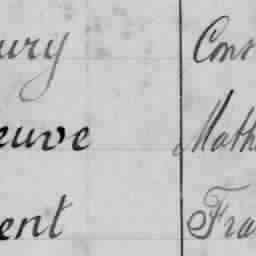 ury Cons
euve Math
ent Fra